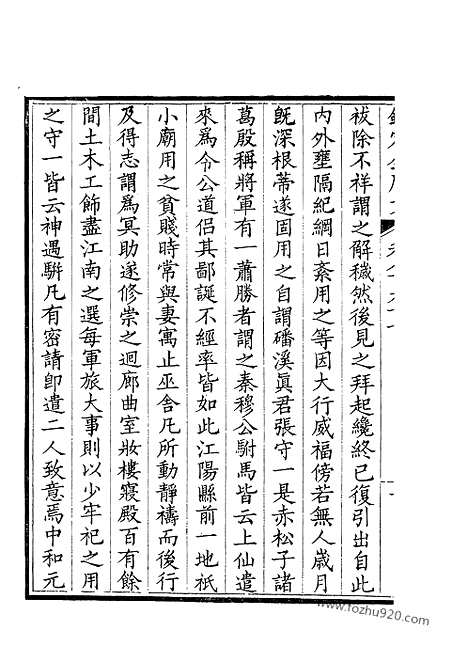 祓除不祥謂之解穢然後見之拜起纔終已復引出自此
内外壅隔紀綱日紊用之等因大行威福傍若無人嵗月
既深根蒂遂固用之自謂磻溪眞君張守一是赤松子諸
葛殷稱將軍有一蕭勝者謂之秦穆公駙馬皆云上仙遣
來爲令公道侣其鄙誕不經率皆如此江陽縣前一地祇
小廟用之貧賤時常與妻寓止巫舍凡所動靜禱而後行
及得志謂爲冥助遂修崇之迴廊曲室妝樓寢殿百有餘
間土木工飾盡江南之選每軍旅大事則以少牢祀之用
之守一皆云神遇駢凡有密請即遣二人致意焉中和元
www.fozhu920.com